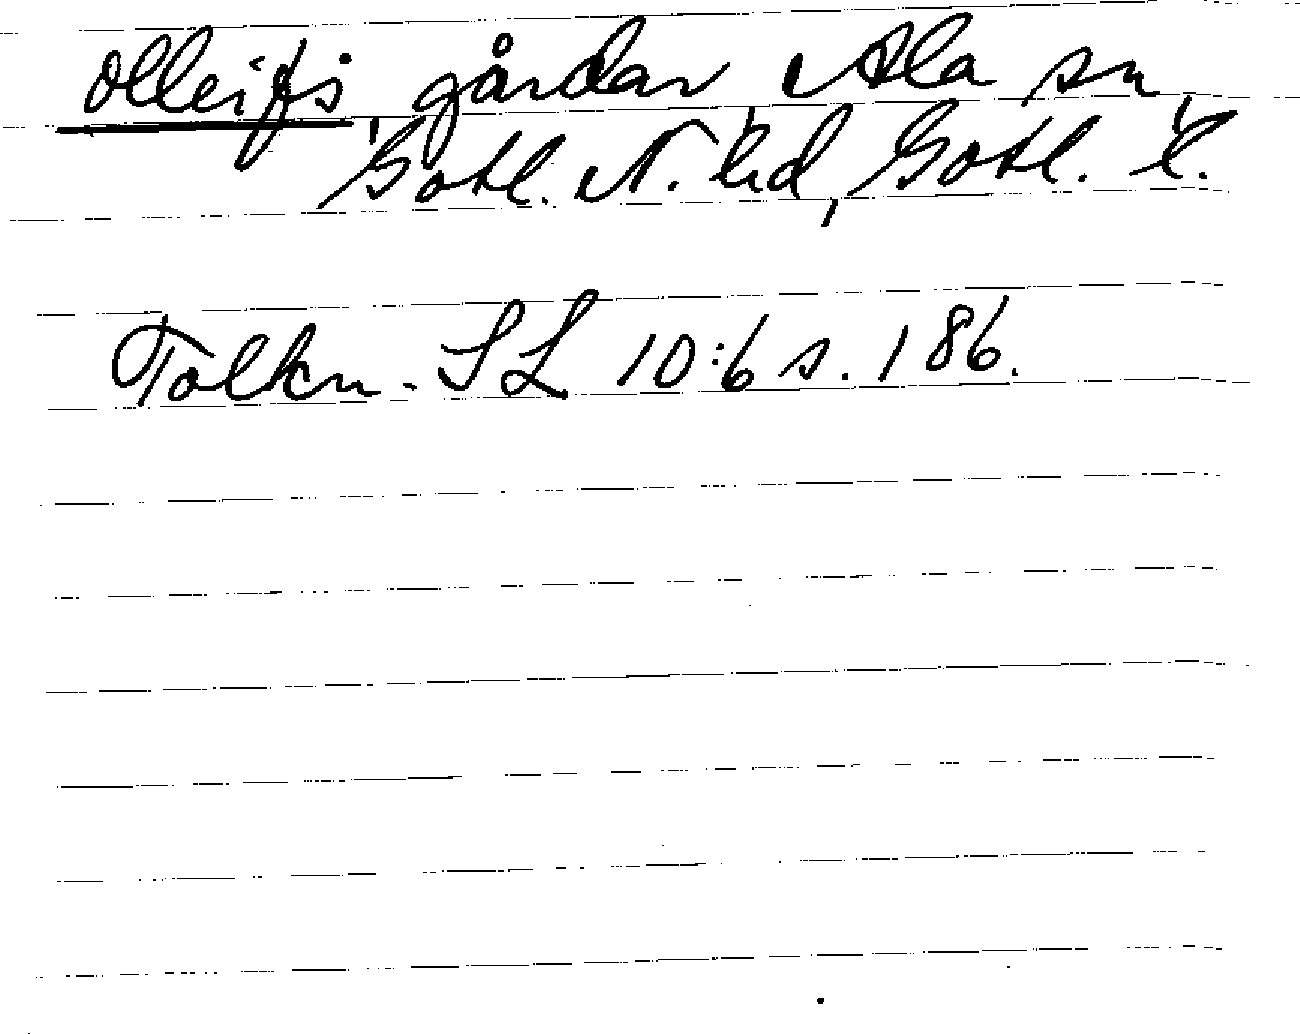 Olleifs gårdar Ala sn
Gotl. N. hd, Gotl. l.
Tolkn. SL 10:6 s. 186.